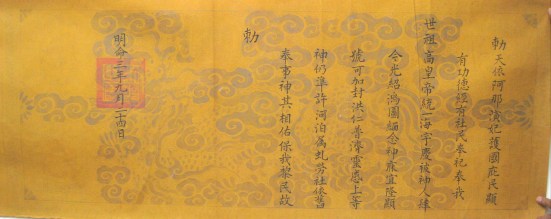 勅天依阿那演妃護國庇民顯
有功德經有社民奉祀奉我
世祖高皇帝統一海宇慶被神人肆
今光紹鴻圖緬念神庥宜隆顯
號可加封洪仁普濟靈感上等
神仍準許河泊属虬芳社依舊
奉事神其相佑保我黎民故
勅
明命三年九月二十四日